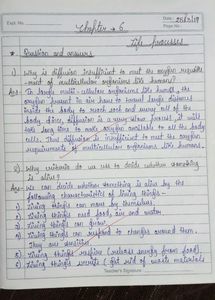 Expt. No.
Date 25/6/19
Page No.
Chapter → 6
Life Processes
* Question and answers
1) Why is diffusion insufficient to meet the oxygen require
-ment of multicellular organisms like humans?
Ans- In large multi-cellular organisms like humans, the
oxygen present in the has to travel large distances
inside the body to reach each and every cell of the
body. Since, diffusion is a very slow process, it will
take long time to make oxygen available to all the body
cells. Thus diffusion is insufficient to meet the oxygen
requirements of multicellular organisms like humans.
2) What criteria do we use to decide whether something
is alive?
Ans- We can decide whether something is alive by the
following characteristics of living things-
1) Living things can move by themselves
2) Living things need food, air and water
3) Living things can grow.
4) Living things can respond to changes around them.
They are sensitive
5) Living things respire (release energy from food)
6) Living things excrete (get rid of waste materials
Teacher's Signature